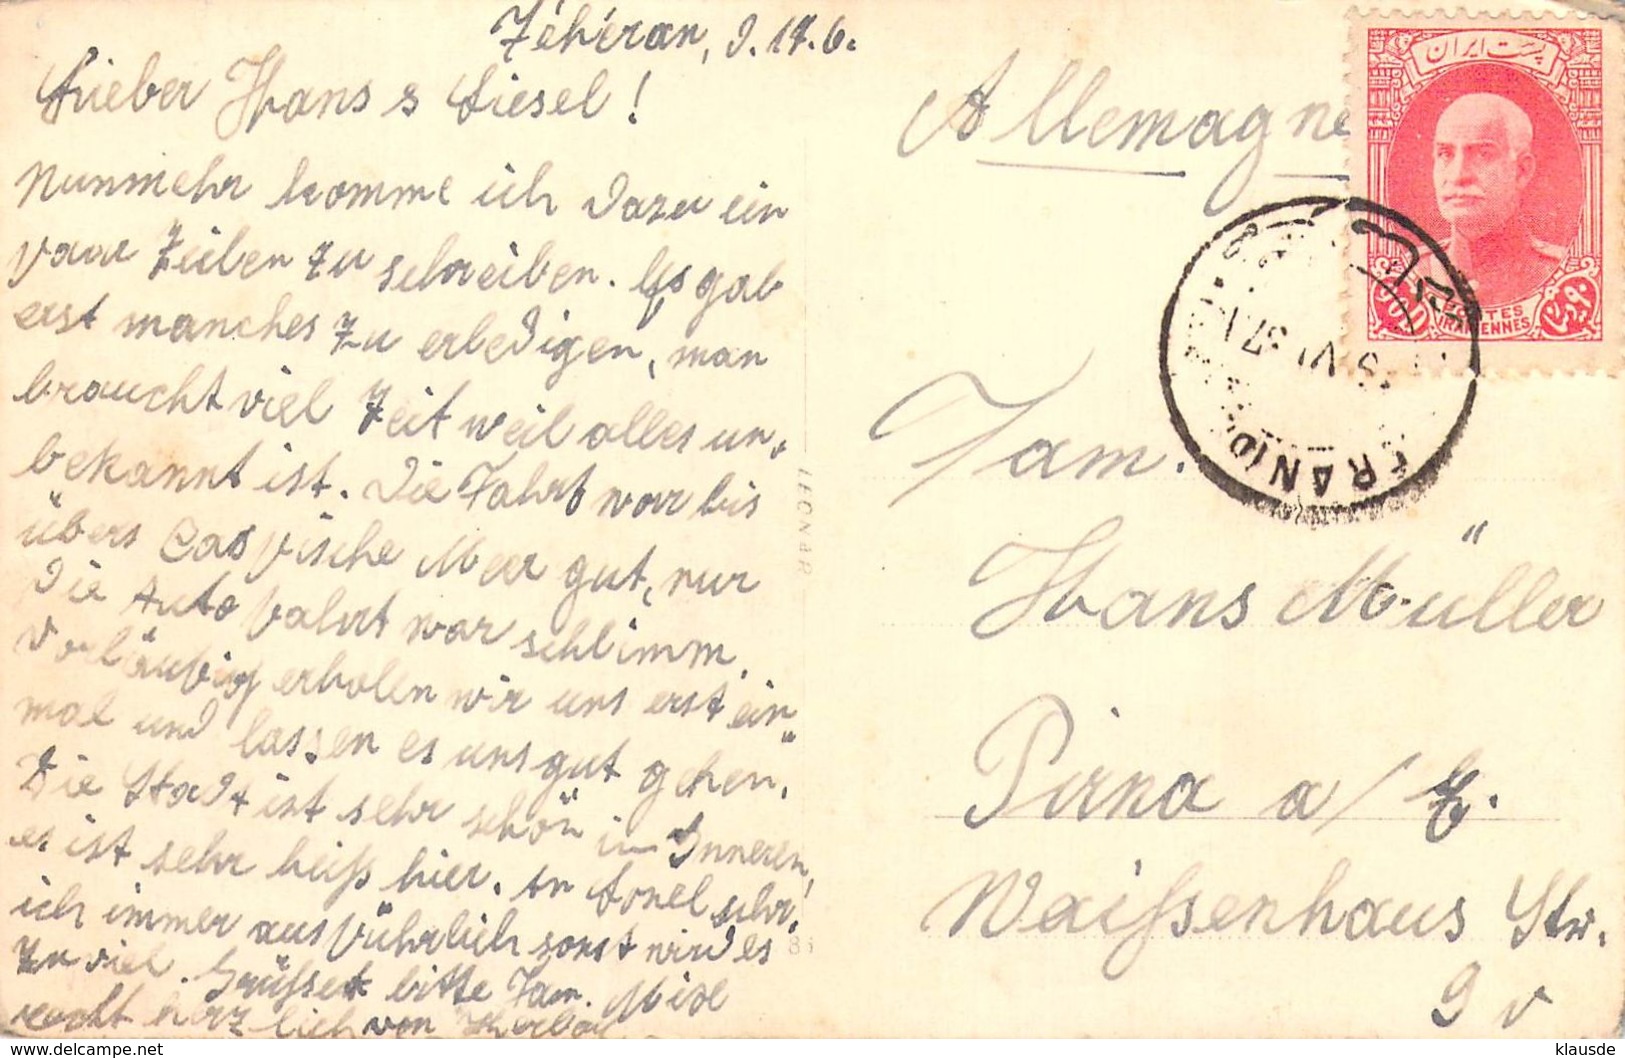 Téhéran, d. 14.6.
Lieber Hans & Liesel!
Nunmehr komme ich dazu ein
paar Zeilen zu schreiben. Es gab
erst manches zu erledigen, man
braucht viel Zeit weil alles un-
bekannt ist. Die Fahrt war bis
übers Caspische Meer gut, nur
die Autofahrt war schlimm.
Vorläufig erholen wir uns erst ein-
mal und lassen es uns gut gehen.
Die Stadt ist sehr schön im Inneren,
es ist sehr heiß hier. An Lonel schr.
ich immer ausführlich sonst wird es
zu viel. Grüsset bitte Fam.
recht herzlich von
Allemagne
Fam.
Hans Müller
Pirna a/E.
Waissenhaus Str.
9 v
پست ایران
POSTES
IRANIENNES
VI 37
LEONAR
klausde